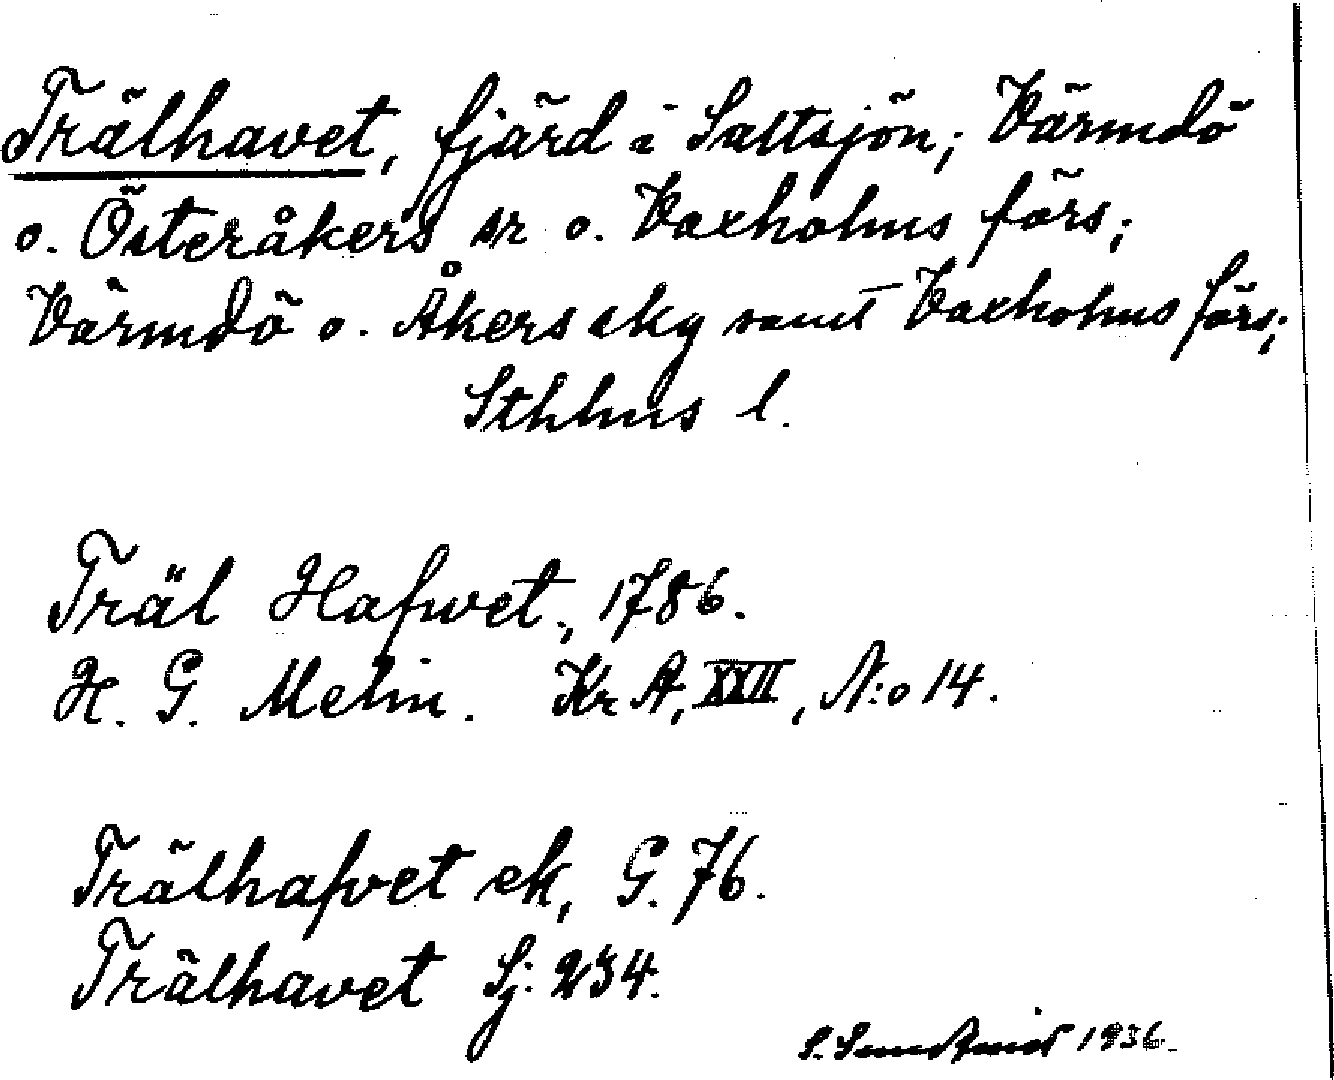 Trälhavet, fjärd i Saltsjön; Värmdö
o. Österåkers sr o. Vaxholms förs;
Värmdö o. Åkers skg samt Vaxholms förs;
Sthlms l.
Träl Hafwet, 1786.
H. G. Melin. Kr A, XXII, N:o 14.
Trälhafvet ek, G. 76.
Trälhavet Sj. 234.
S. 1936.